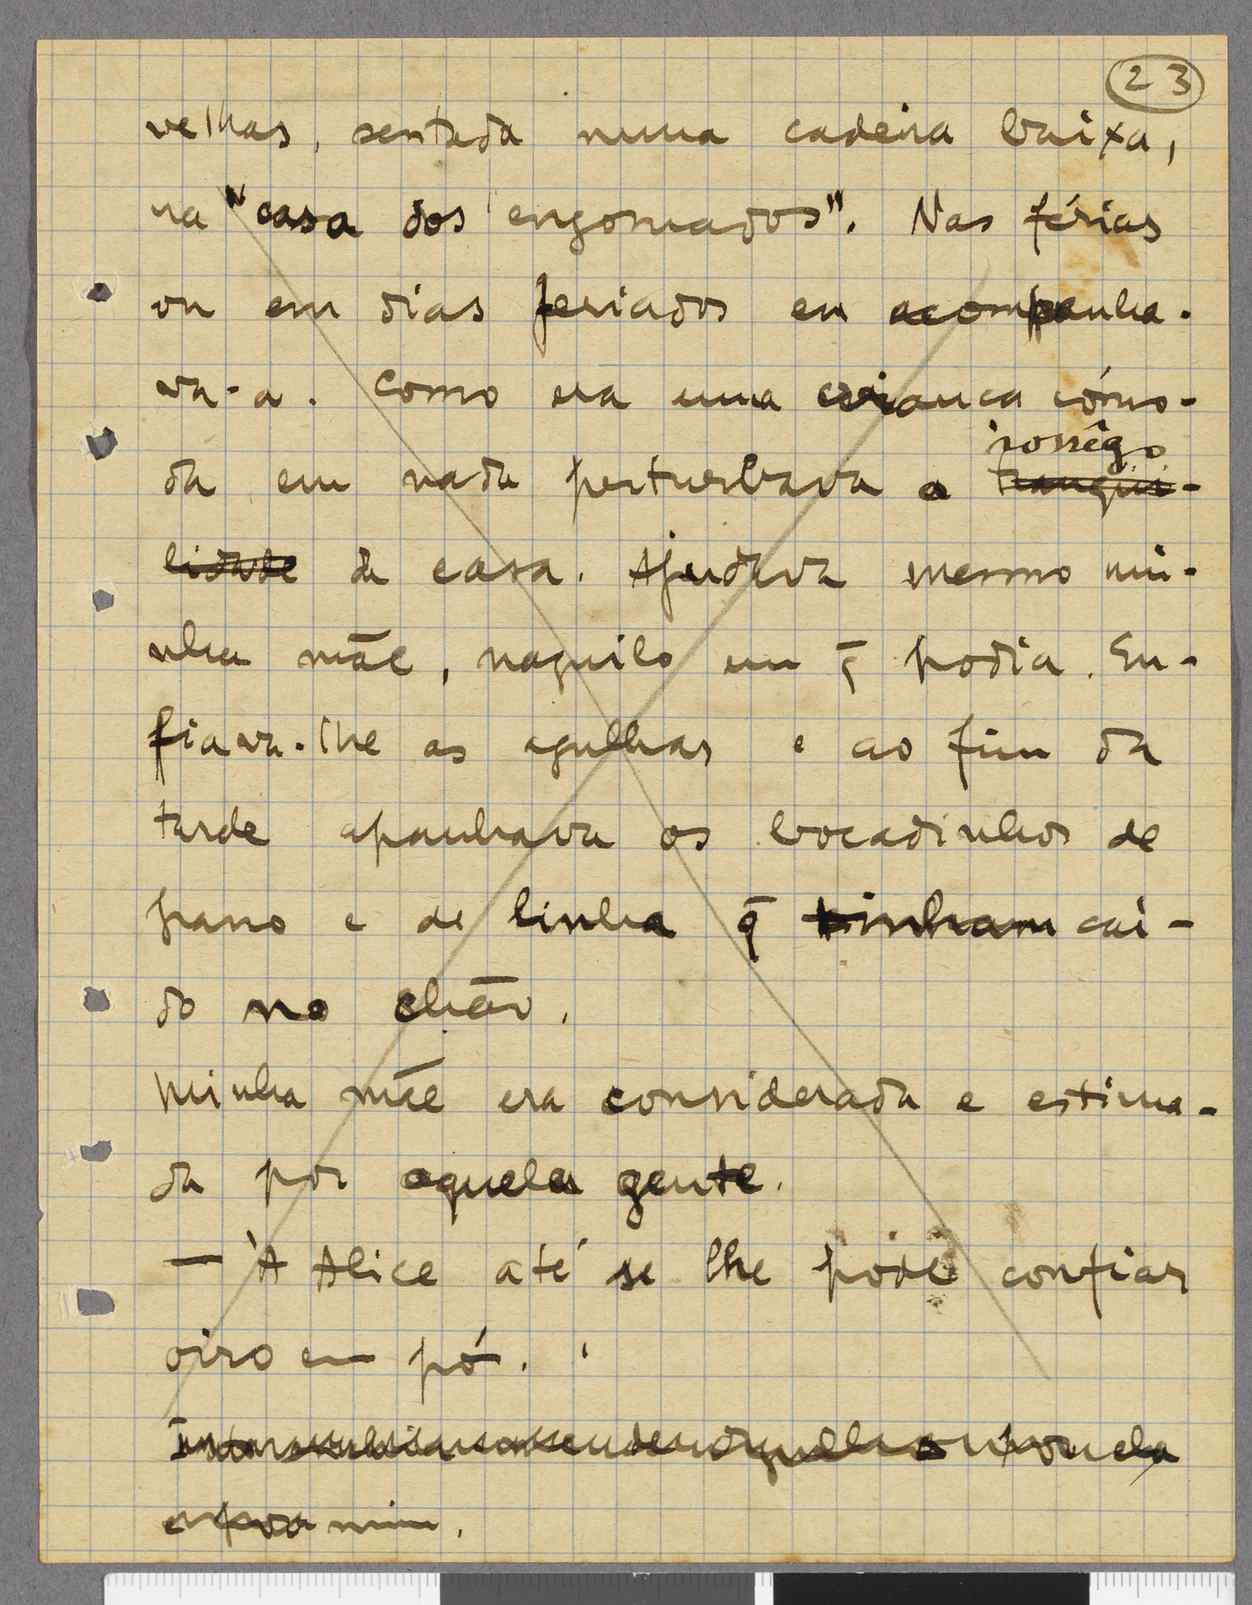 23
velhas, sentada numa cadeira baixa,
na "casa dos engomados". Nas férias
ou em dias feriados eu acompanha-
va-a. Como era uma criança cómo-
sossêgo
da em nada perturbava o tranqui-
lidade da casa. Ajudava mesmo mi-
nha mãe, naquilo em q̄ podia. En-
fiava-lhe as agulhas e ao fim da
tarde apanhava os bocadinhos de
pano e de linha q̄ tinham caí-
do no chão.
Minha mãe era considerada e estima-
da por aquela gente.
— À Alice até se lhe pode confiar
oiro em pó.
orgulho para ela
e para mim.